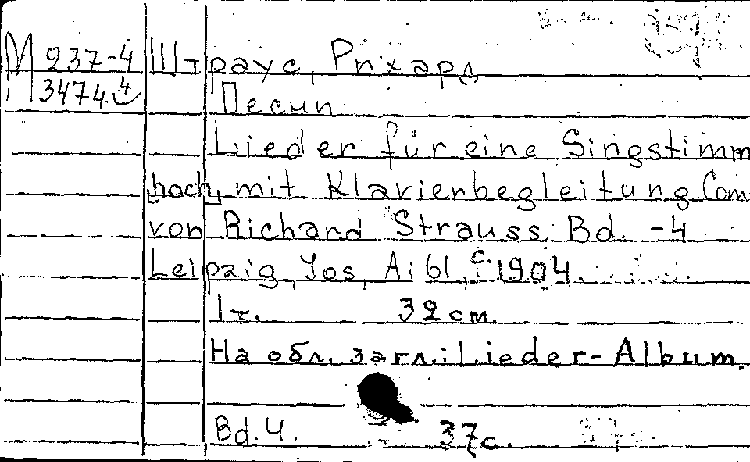 М 237-4 Штраус, Рихард
М 3474 4 Песни
Lieder für eine Singstimm
hoch, mit Klavierbegleitung Com
von Richard Strauss, Bd. -4
Leipzig, Jos, Aibl, c. 1904.
1 т. 32 см.
На обл. загл.: Lieder-Album.
Bd. 4. 37с.